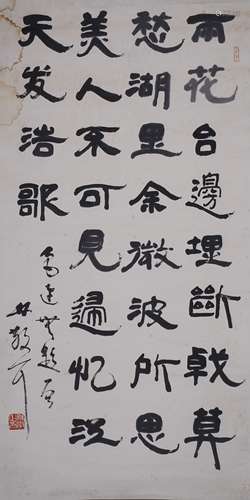 雨花台邊埋斷戟莫
愁湖里余微波所思
美人不可見歸忆江
天发浩歌
魯迅無題